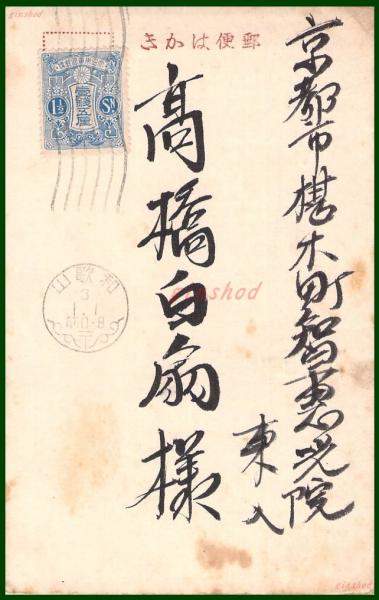 郵便はかき
京都市椹木町智恵光院
東入
高橋白扇様
大日本帝國郵便
壹錢五厘
1½ Sn
和歌山
3
1.1
前0-8
ginshod
ginshod
ginshod